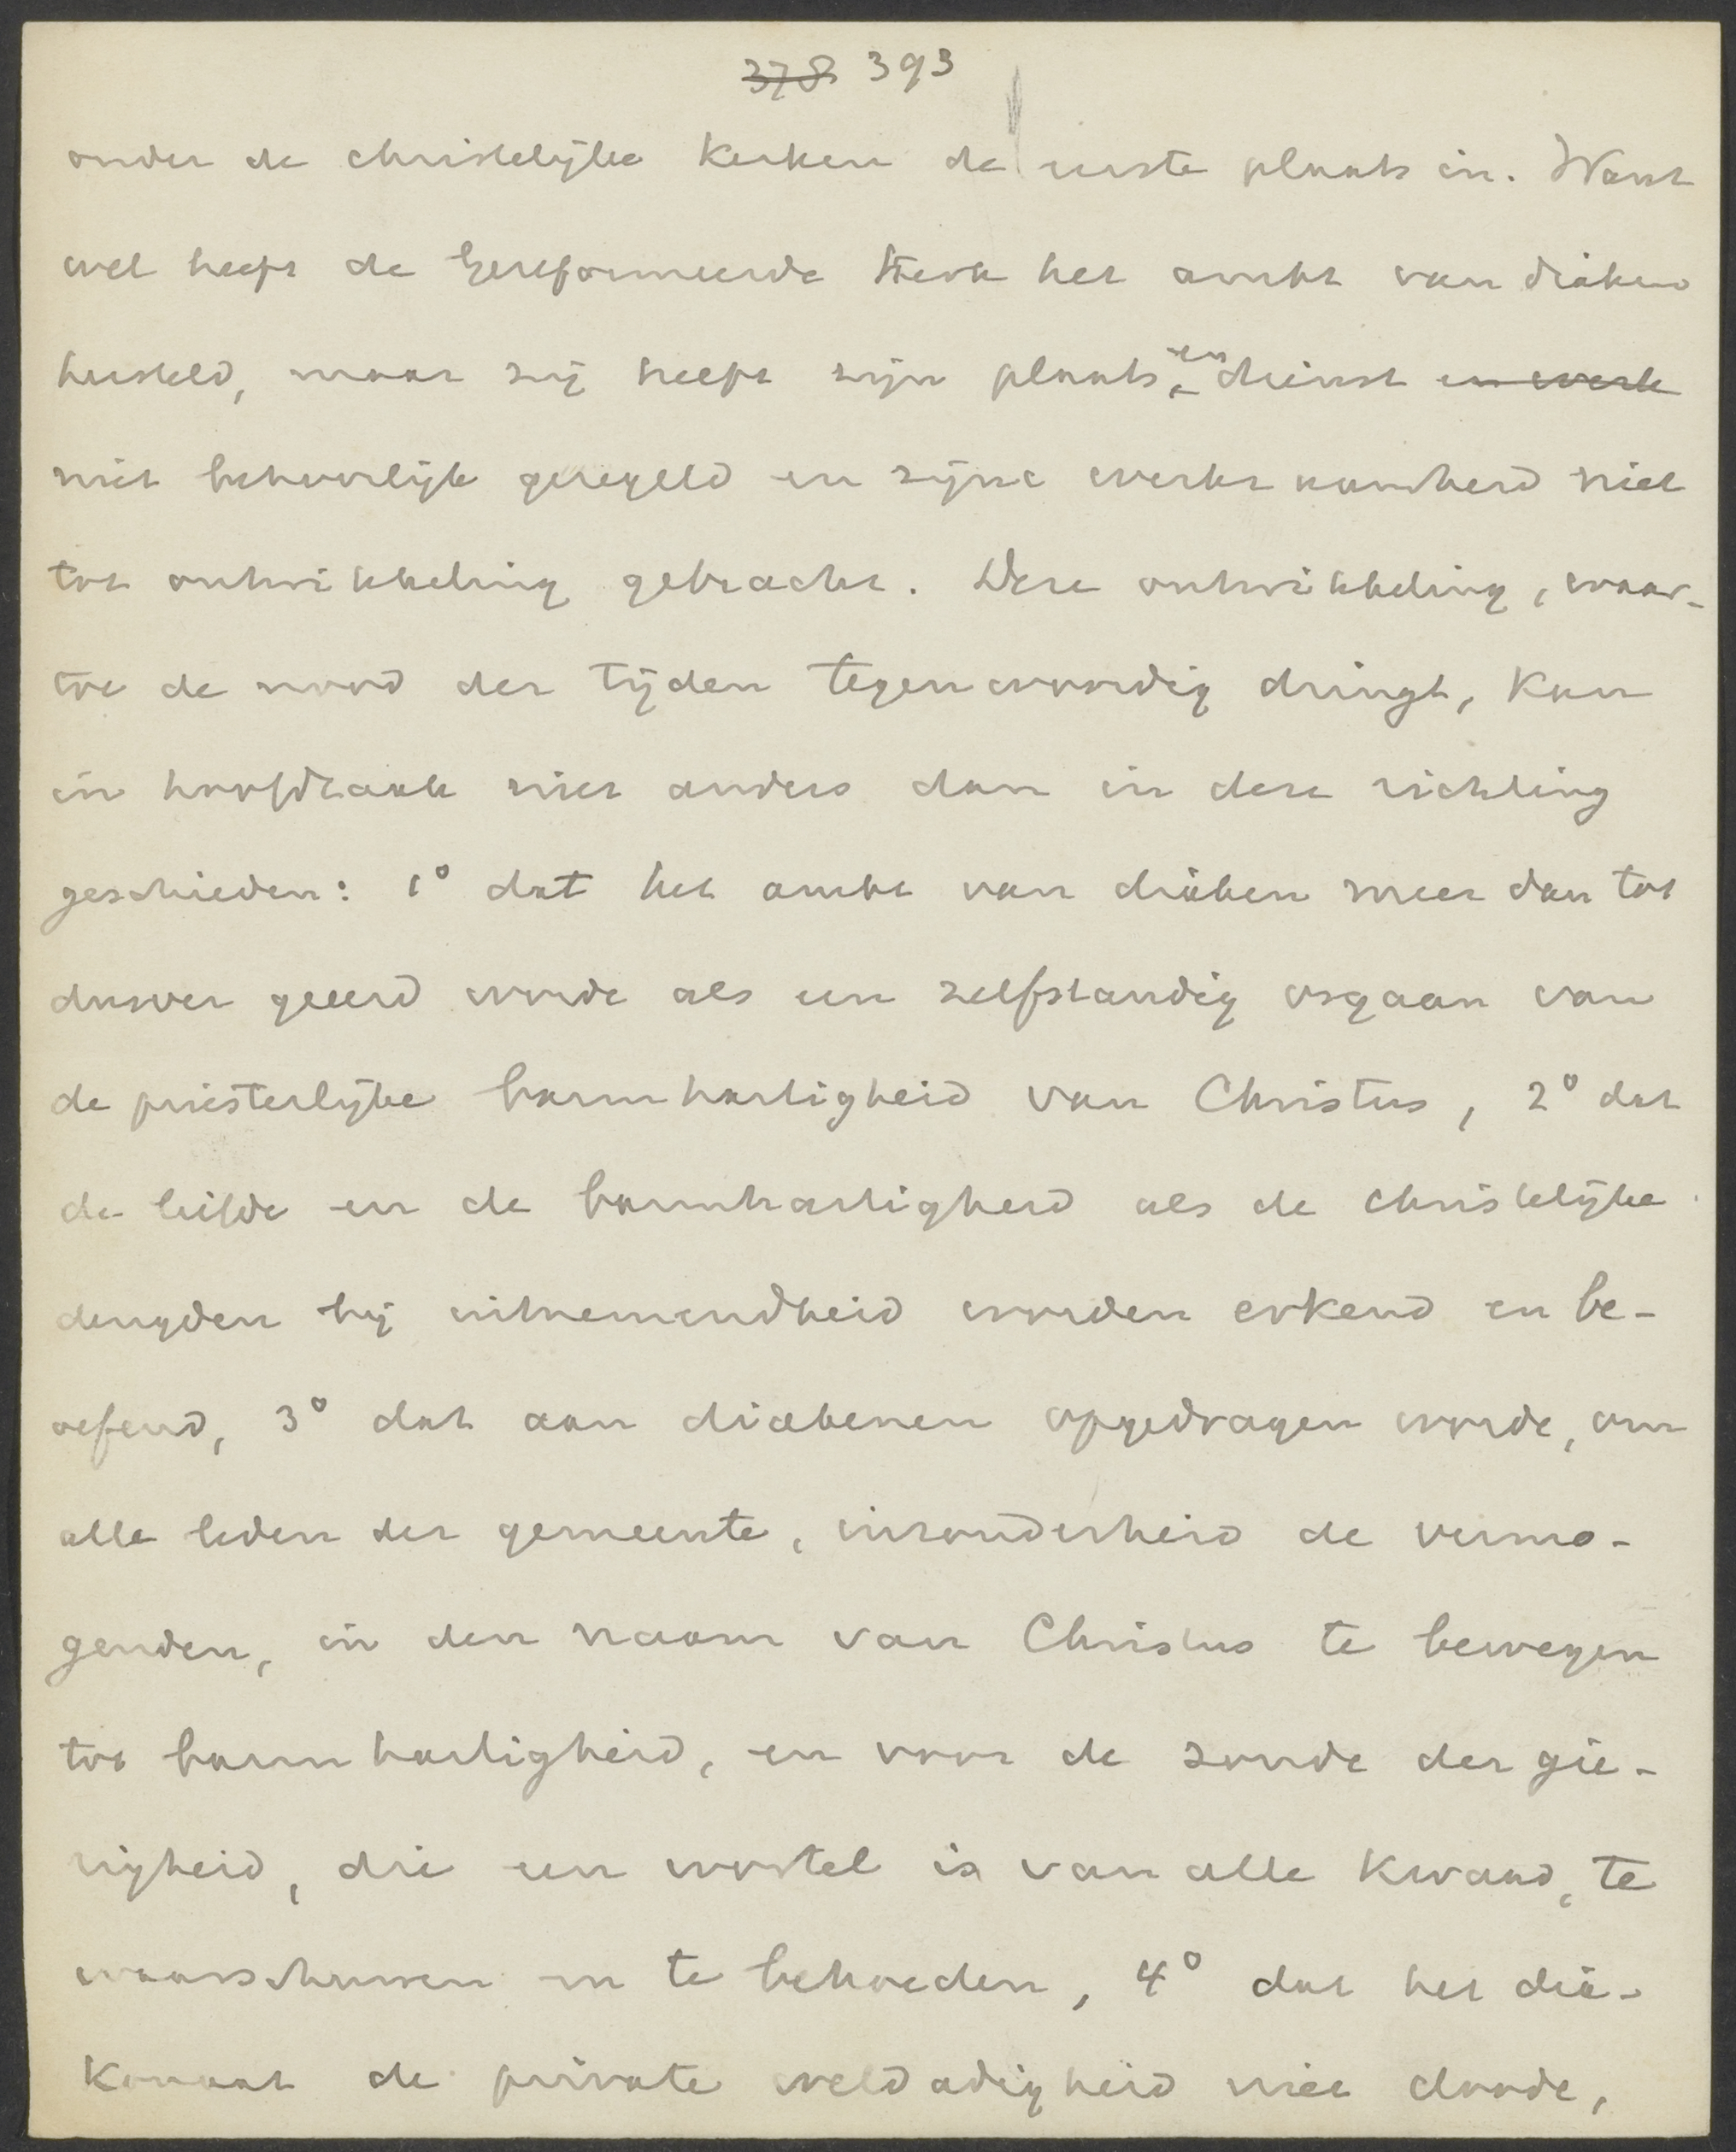 378 393
onder de christelijke kerken de eerste plaats in. Want
wel heeft de Gereformeerde Kerk het ambt van diaken
hersteld, maar zij heeft zijn plaats, en dienst en werk
niet behoorlijk geregeld en zijne werkzaamheid niet
tot ontwikkeling gebracht. Deze ontwikkeling, waar-
toe de nood der tijden tegenwoordig dringt, kan
in hoofdzaak niet anders dan in deze richting
geschieden: 1° dat het ambt van diaken meer dan tot
dusver geeerd worde als een zelfstandig orgaan van
de priesterlijke barmhartigheid van Christus, 2° dat
de liefde en de barmhartigheid als de christelijke
deugden bij uitnemendheid worden erkend en be-
oefend, 3° dat aan diakenen opgedragen worde, om
alle leden der gemeente, inzonderheid de vermo-
genden, in den naam van Christus te bewegen
tot barmhartigheid, en voor de zonde der gie-
righeid, die een wortel is van alle kwaad, te
waarschuwen en te behoeden, 4° dat het dia-
konaat de private weldadigheid niet doode,